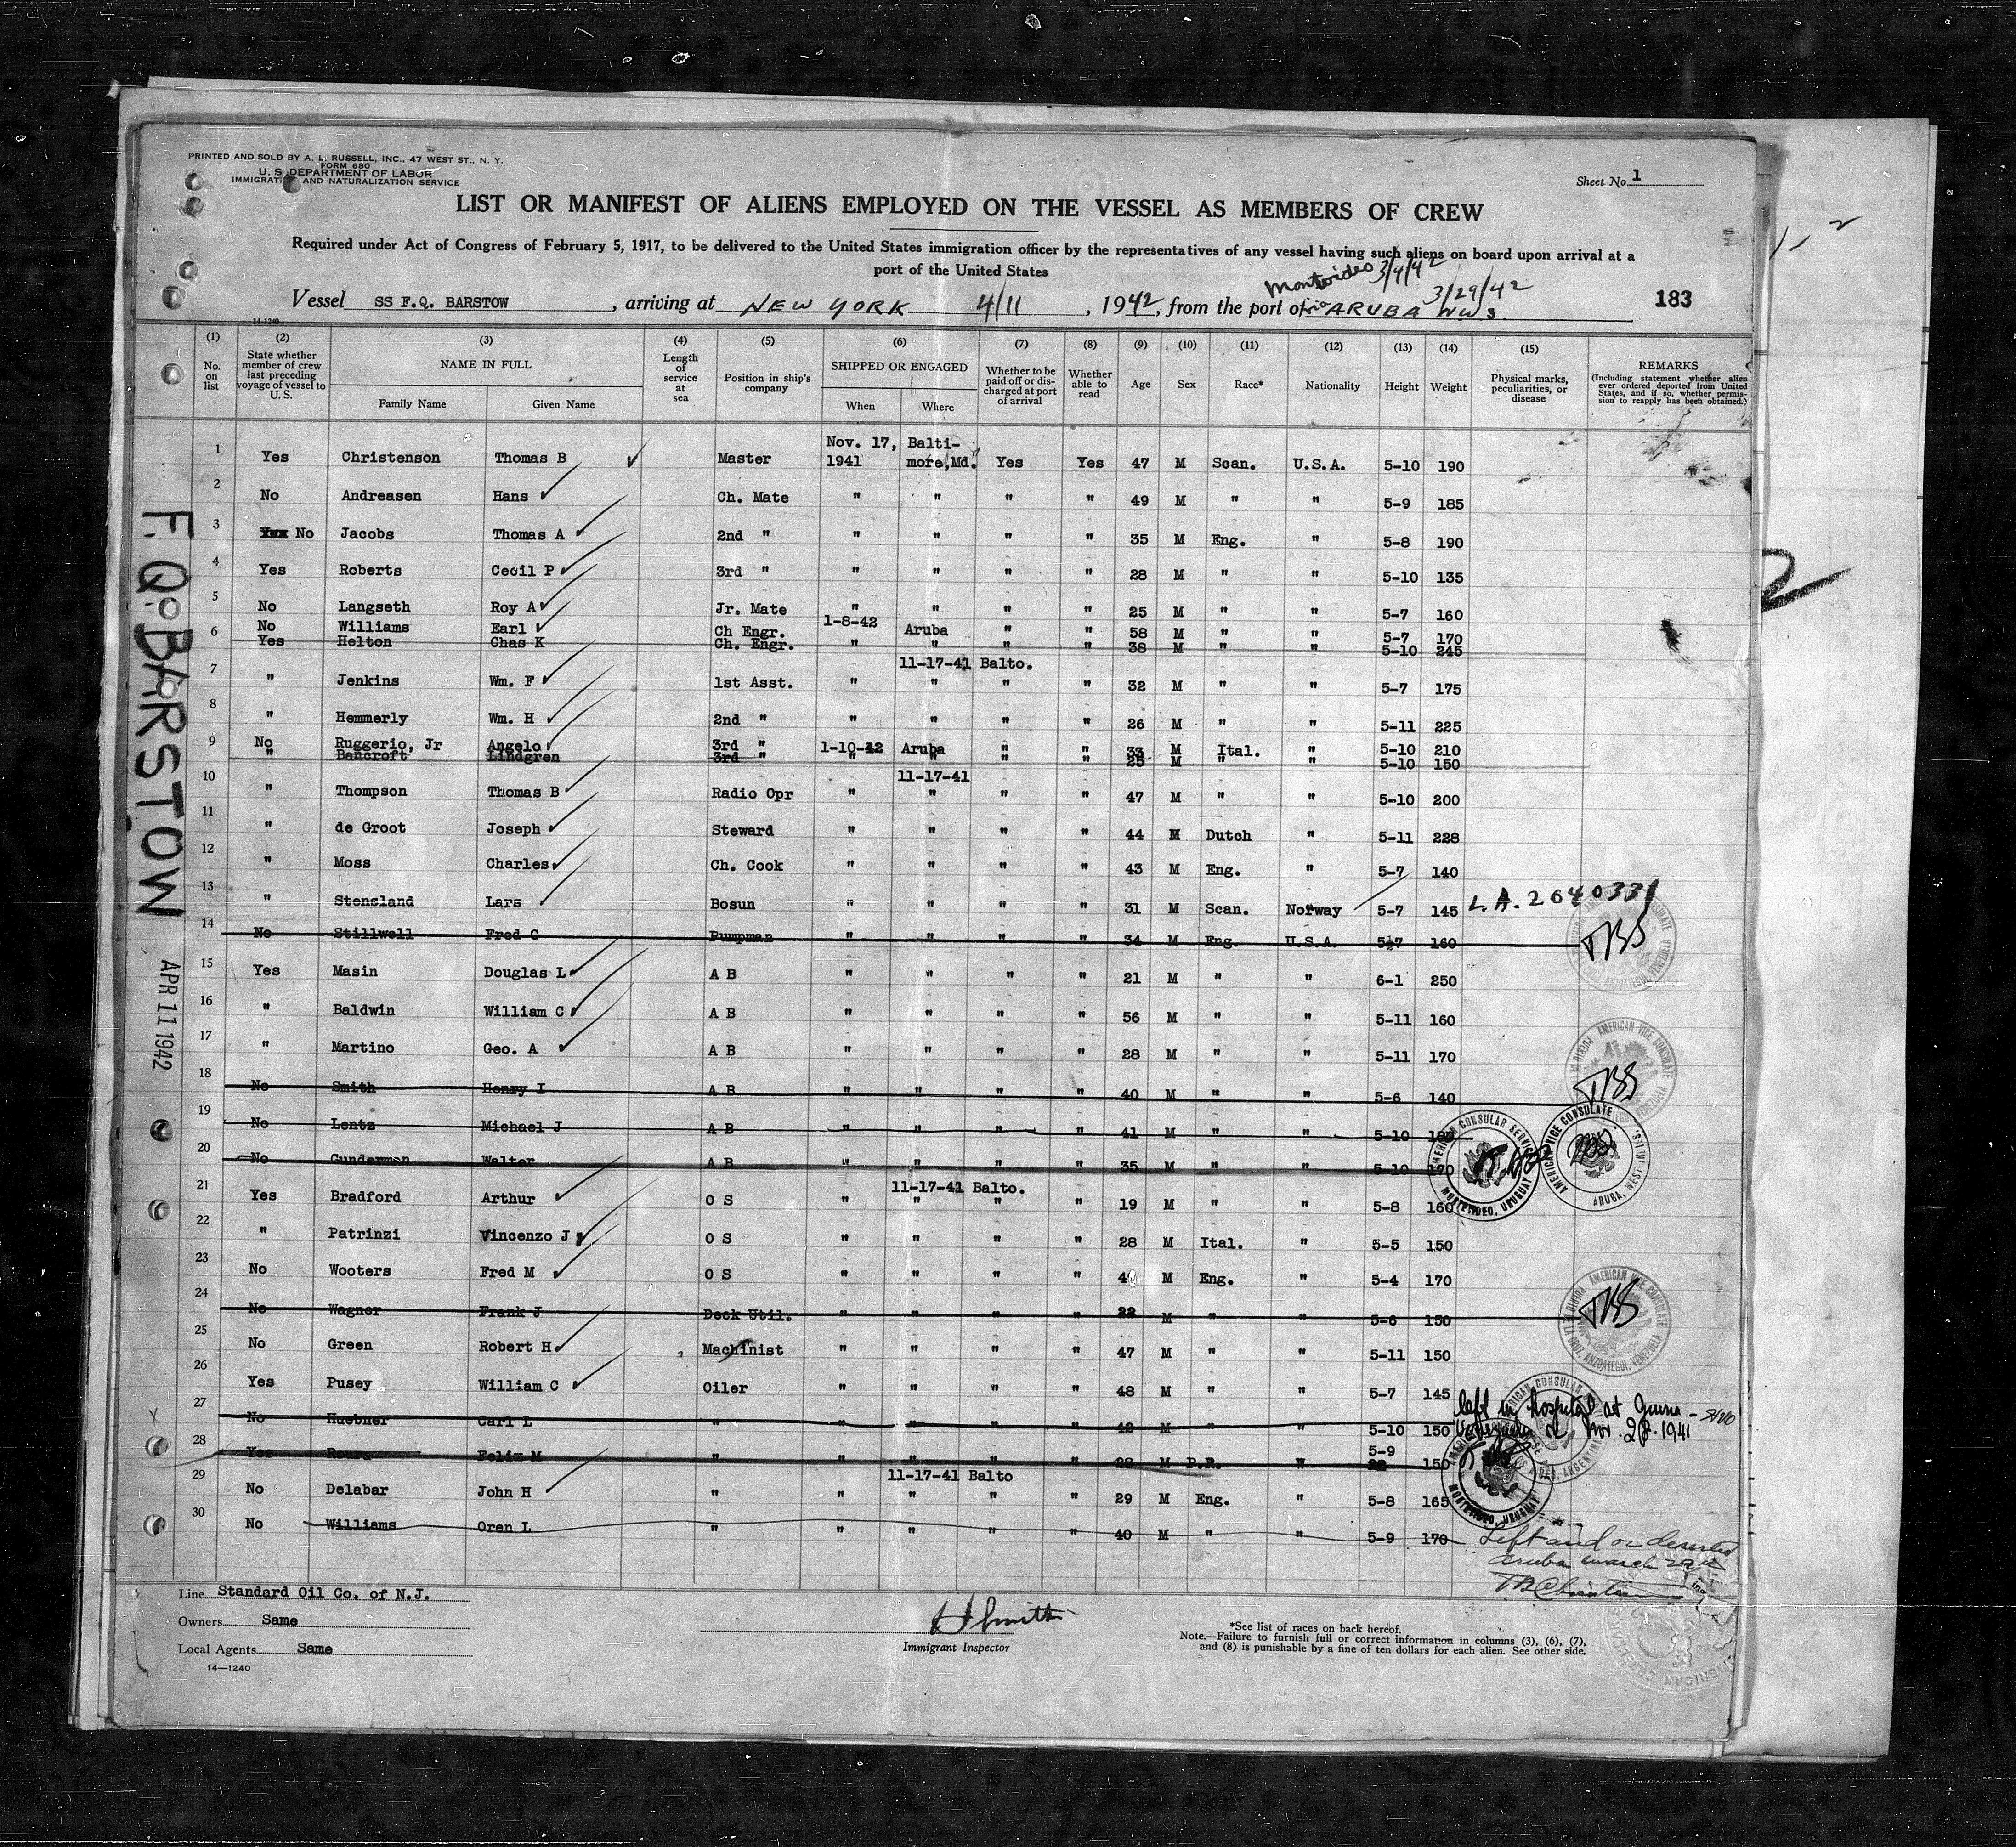 PRINTED AND SOLD BY A. L. RUSSELL, INC., 47 WEST ST., N. Y.
FORM 680
U. S. DEPARTMENT OF LABOR
IMMIGRATION AND NATURALIZATION SERVICE
Sheet No. 1
LIST OR MANIFEST OF ALIENS EMPLOYED ON THE VESSEL AS MEMBERS OF CREW
Required under Act of Congress of February 5, 1917, to be delivered to the United States immigration officer by the representatives of any vessel having such aliens on board upon arrival at a
port of the United States
Montevideo 3/4/42
Vessel SS F.Q. BARSTOW, arriving at NEW YORK 4/11, 1942, from the port of via ARUBA NWS 3/29/42
183
14-1240
(1) (2) (3) (4) (5) (6) (7) (8) (9) (10) (11) (12) (13) (14) (15)
No. on list
State whether member of crew last preceding voyage of vessel to U. S.
NAME IN FULL
Family Name Given Name
Length of service at sea
Position in ship's company
SHIPPED OR ENGAGED
When Where
Whether to be paid off or discharged at port of arrival
Whether able to read
Age Sex Race* Nationality Height Weight
Physical marks, peculiarities, or disease
REMARKS
(Including statement whether alien ever ordered deported from United States, and if so, whether permission to reapply has been obtained.)
1 Yes Christenson Thomas B Master Nov. 17, 1941 Baltimore, Md. Yes Yes 47 M Scan. U.S.A. 5-10 190
2 No Andreasen Hans Ch. Mate " " " " 49 M " " 5-9 185
3 Yes No Jacobs Thomas A 2nd " " " " " 35 M Eng. " 5-8 190
4 Yes Roberts Cecil P 3rd " " " " " 28 M " " 5-10 135
5 No Langseth Roy A Jr. Mate " " " " 25 M " " 5-7 160
6 No Williams Earl Ch Engr. 1-8-42 Aruba " " 58 M " " 5-7 170
Yes Helton Chas K Ch. Engr. " " " " 38 M " " 5-10 245
11-17-41 Balto.
7 " Jenkins Wm. F 1st Asst. " " " " 32 M " " 5-7 175
8 " Hemmerly Wm. H 2nd " " " " " 26 M " " 5-11 225
9 No Ruggerio, Jr Angelo 3rd " 1-10-42 Aruba " " 33 M Ital. " 5-10 210
" Bancroft Lindgren 3rd " " " " " 25 M " " 5-10 150
11-17-41
10 " Thompson Thomas B Radio Opr " " " " 47 M " " 5-10 200
11 " de Groot Joseph Steward " " " " 44 M Dutch " 5-11 228
12 " Moss Charles Ch. Cook " " " " 43 M Eng. " 5-7 140
13 " Stensland Lars Bosun " " " " 31 M Scan. Norway 5-7 145 L.A. 2640331
14 No Stillwell Fred C Pumpman " " " " 34 M Eng. U.S.A. 5½7 160 TBS
15 Yes Masin Douglas L A B " " " " 21 M " " 6-1 250
16 " Baldwin William C A B " " " " 56 M " " 5-11 160
17 " Martino Geo. A A B " " " " 28 M " " 5-11 170
18 No Smith Henry I A B " " " " 40 M " " 5-6 140 TBS
19 No Lentz Michael J A B " " " " 41 M " " 5-10
20 No Gunderman Walter A B " " " " 35 M " " 5-10 170
11-17-41 Balto.
21 Yes Bradford Arthur O S " " " " 19 M " " 5-8 160
22 " Patrinzi Vincenzo J O S " " " " 28 M Ital. " 5-5 150
23 No Wooters Fred M O S " " " " M Eng. " 5-4 170
24 No Wagner Frank J Deck Util. " " " " 22 M " " 5-6 150 TBS
25 No Green Robert H Machinist " " " " 47 M " " 5-11 150
26 Yes Pusey William C Oiler " " " " 48 M " " 5-7 145
27 No Huebner Carl L " " " " " 42 M " " 5-10 150 left in hospital at Nov. 28, 1941
28 Yes Felix M " 28 M P.R. " 5-9 150
11-17-41 Balto
29 No Delabar John H " " " " " 29 M Eng. " 5-8 165
30 No Williams Oren L " " " " " 40 M " " 5-9 170 Left and or deserted
Aruba March 29
TB Christenson
AMERICAN VICE CONSULATE
PUERTO DE LA CRUZ ANZOATEGUI, VENEZUELA
AMERICAN CONSULAR SERVICE
MONTEVIDEO, URUGUAY
AMERICAN VICE CONSULATE
ARUBA, NETH. W.I.S.
F. Q. BARSTOW
APR 11 1942
Line Standard Oil Co. of N.J.
Owners Same
Local Agents Same
14—1240
H Smith
Immigrant Inspector
*See list of races on back hereof.
Note.—Failure to furnish full or correct information in columns (3), (6), (7),
and (8) is punishable by a fine of ten dollars for each alien. See other side.